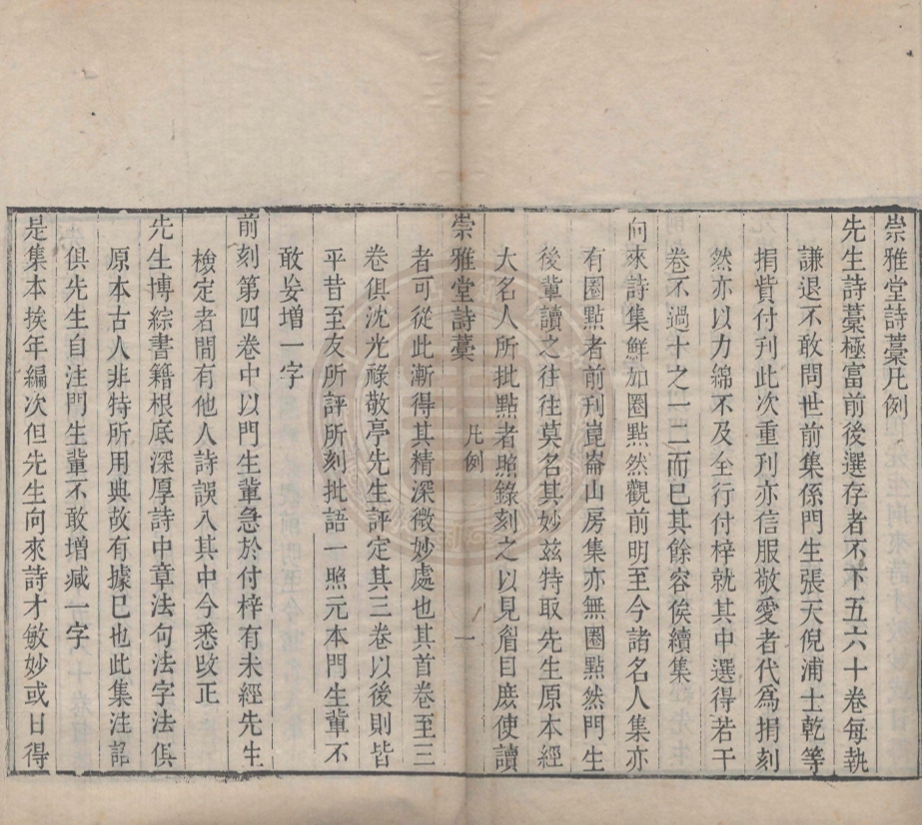 崇雅堂詩藁凡例
先生詩藁極富前後選存者不下五六十卷每執
謙退不敢問世前集係門生張天倪浦士乾等
捐貲付刊此次重刊亦信服敬愛者代為捐刻
然亦以力綿不及全行付梓就其中選得若干
卷不過十之一二而已其餘容俟續集
向來詩集鮮加圈點然觀前明至今諸名人集亦
有圈點者前刊崑崙山房集亦無圈點然門生
後輩讀之往往莫名其妙兹特取先生原本經
大名人所批點者照錄刻之以見眉目庶使讀
崇雅堂詩藁 凡例 一
者可從此漸得其精深微妙處也其首卷至三
卷俱沈光祿敬亭先生評定其三卷以後則皆
平昔至友所評所刻批語一照元本門生輩不
敢妄增一字
前刻第四卷中以門生輩急於付梓有未經先生
檢定者間有他人詩誤入其中今悉改正
先生博綜書籍根底深厚詩中章法句法字法俱
原本古人非特所用典故有據已也此集注詺
俱先生自注門生輩不敢增減一字
是集本挨年編次但先生向來詩才敏妙或日得